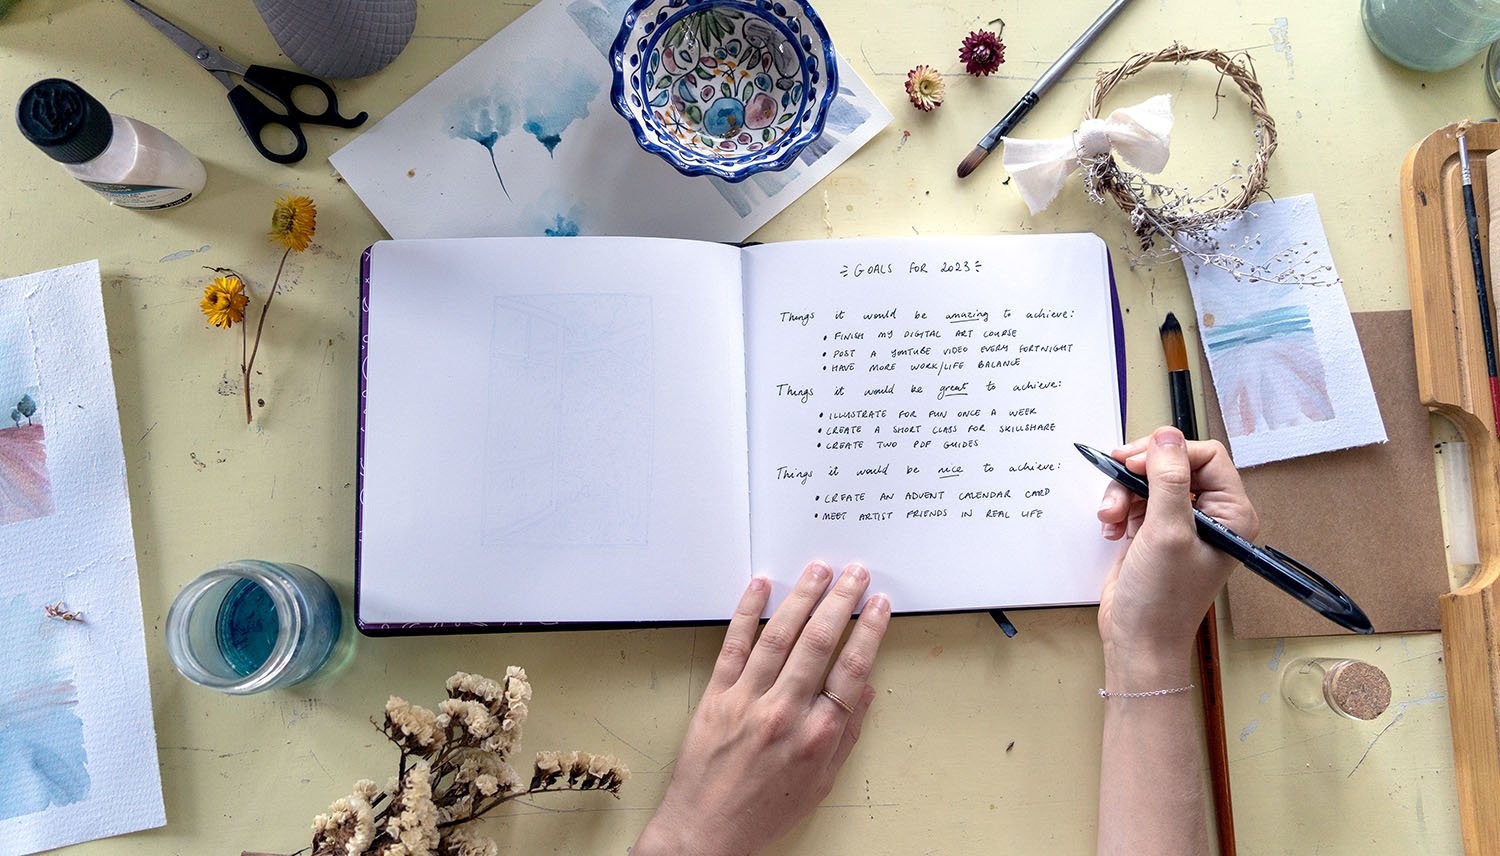 GOALS FOR 2023
Things it would be amazing to achieve:
• FINISH MY DIGITAL ART COURSE
• POST A YOUTUBE VIDEO EVERY FORTNIGHT
• HAVE MORE WORK/LIFE BALANCE
Things it would be great to achieve:
• ILLUSTRATE FOR FUN ONCE A WEEK
• CREATE A SHORT CLASS FOR SKILLSHARE
• CREATE TWO PDF GUIDES
Things it would be nice to achieve:
• CREATE AN ADVENT CALENDAR CARD
• MEET ARTIST FRIENDS IN REAL LIFE